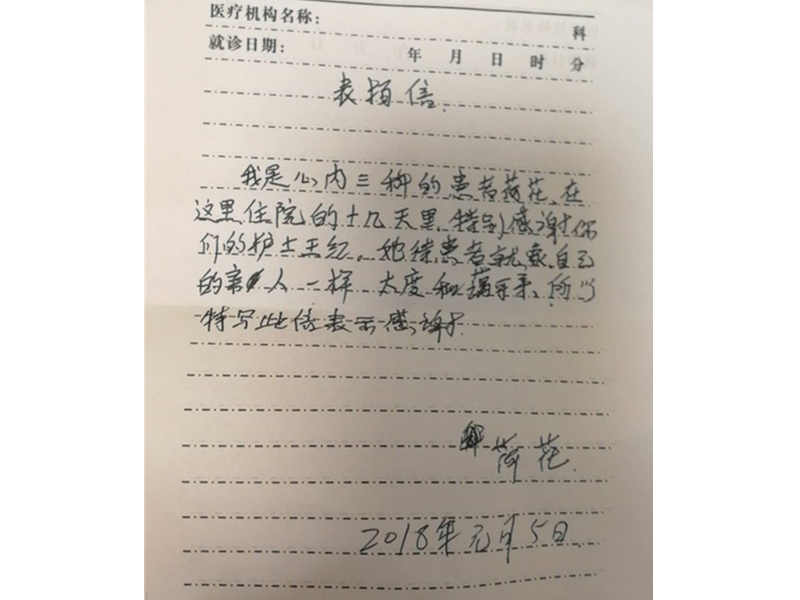 医疗机构名称： 科
就诊日期： 年 月 日 时 分
表扬信
我是心内三科的患者荷花、在
这里住院的十几天里、特别感谢你
们的护士王红。她待患者就象自己
的亲人一样 太度和蔼可亲、所以
特写此信表示感谢
荷花
2018年元月5日